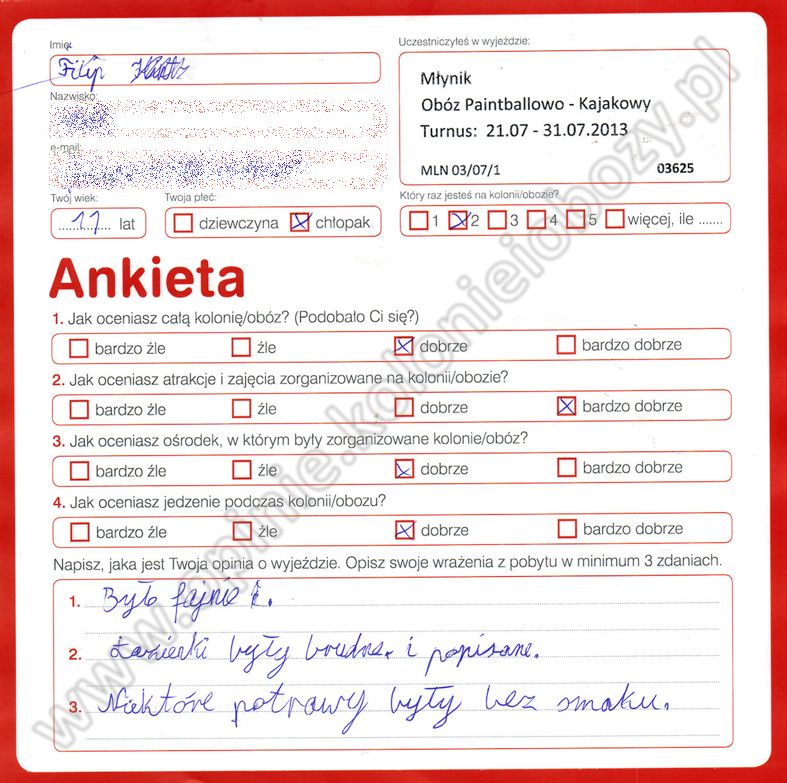 Imię:
Uczestniczyłeś w wyjeździe:
Filip
Młynik
Obóz Paintballowo - Kajakowy
Turnus: 21.07 - 31.07.2013
MLN 03/07/1 03625
Nazwisko:
e-mail:
Twój wiek: Twoja płeć: Który raz jesteś na kolonii/obozie?
11 lat dziewczyna chłopak 1 2 3 4 5 więcej, ile .......
Ankieta
1. Jak oceniasz całą kolonię/obóz? (Podobało Ci się?)
bardzo źle źle dobrze bardzo dobrze
2. Jak oceniasz atrakcje i zajęcia zorganizowane na kolonii/obozie?
bardzo źle źle dobrze bardzo dobrze
3. Jak oceniasz ośrodek, w którym były zorganizowane kolonie/obóz?
bardzo źle źle dobrze bardzo dobrze
4. Jak oceniasz jedzenie podczas kolonii/obozu?
bardzo źle źle dobrze bardzo dobrze
Napisz, jaka jest Twoja opinia o wyjeździe. Opisz swoje wrażenia z pobytu w minimum 3 zdaniach.
1. Było fajnie.
2. Łazienki były brudne i popisane.
3. Niektóre potrawy były bez smaku.
www.opinie.kolonieiobozy.pl